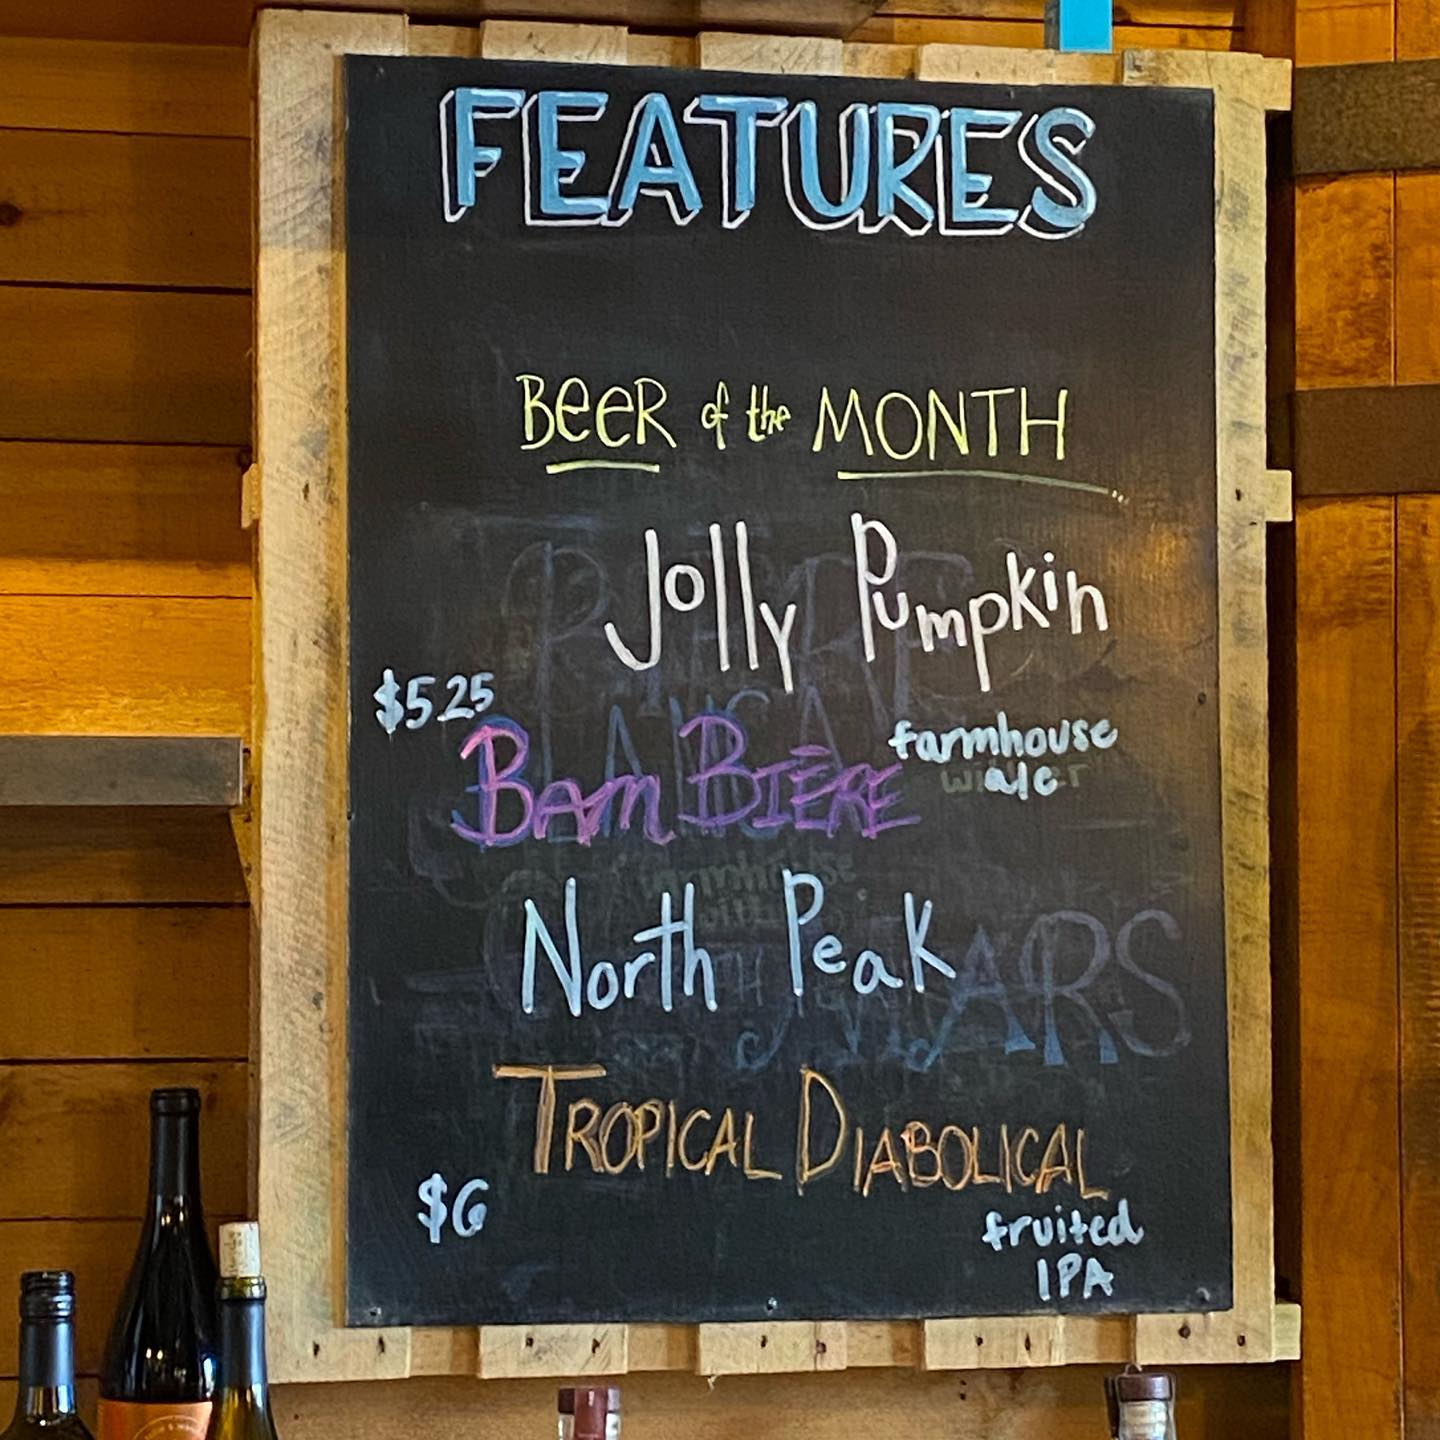 FEATURES
BeeR of the MONTH
Jolly Pumpkin
$5.25
Bam BIÈRE
farmhouse
ale
North Peak
TROPICAL DIABOLICAL
$6
fruited
IPA